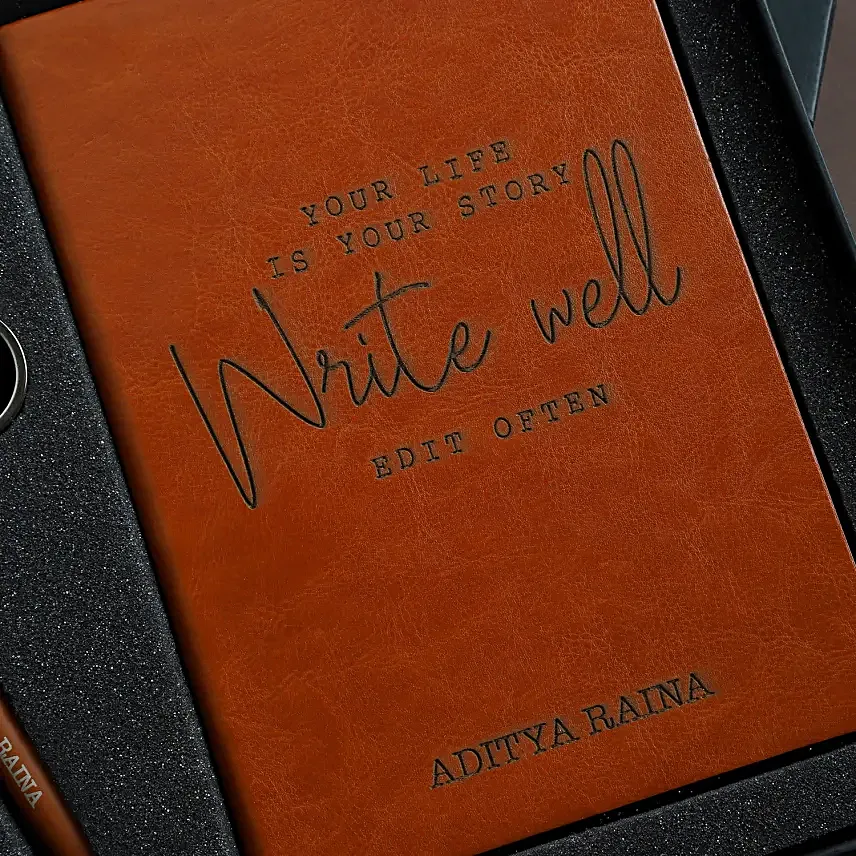 YOUR LIFE
IS YOUR STORY
Write well
EDIT OFTEN
ADITYA RAINA
RAINA